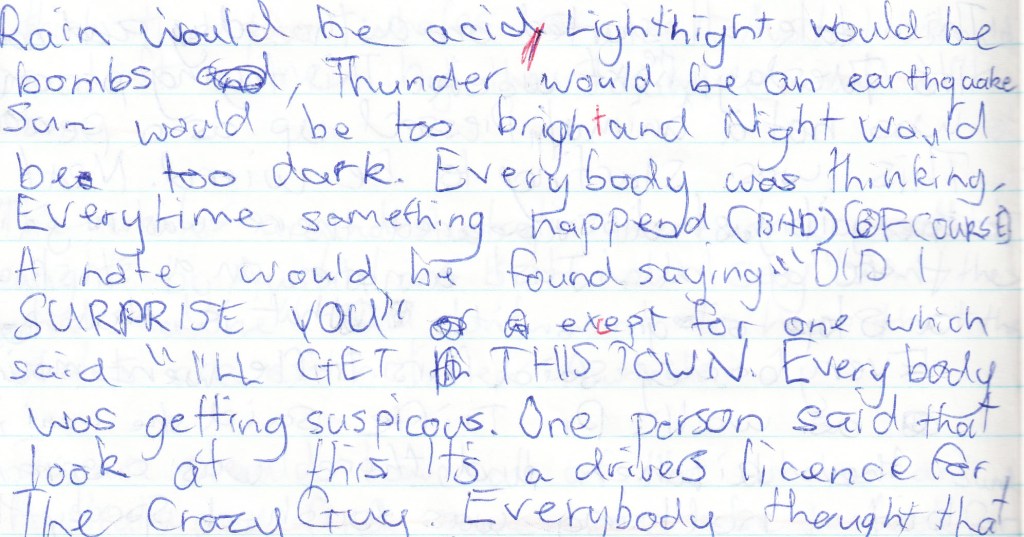 Rain would be acid, Lighthight would be
bombs, Thunder would be an earthquake
Sun would be too bright and Night would
be too dark. Everybody was thinking,
Everytime something happend (BAD) (OF COURSE)
A note would be found saying "" DID I
SURPRISE YOU"" except for one which
said ""I'LL GET THIS TOWN. Everybody
was getting suspicous. One person said that
look at this It's a drivers licence for
The Crazy Guy. Everybody thought that